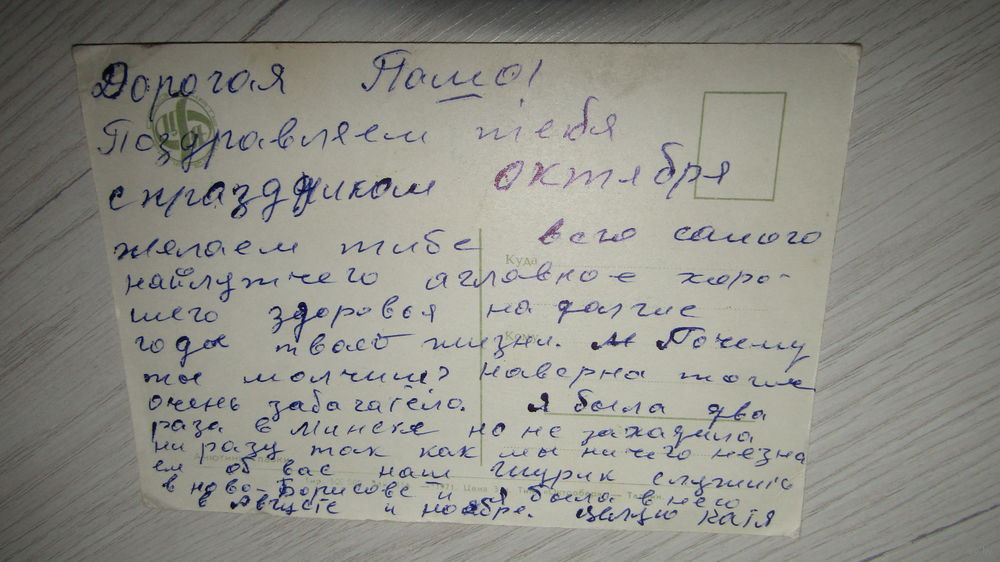 Дорогая Пашо!
Поздравляем тiебя
с праздником октября
желаем тибе всего самого
найлучжего а главное харо-
шего здоровья на долгие
года тваей жизни. Почему
ты молчиш? наверна тоже
очень забачатело. Я была два
раза в Минске но не захадила
ни разу так как мы ничего незна
ем об вас наш Шурик служить
в ново-Борисове и я была в него
в Августе и ноябре. Целую Катя
Куда